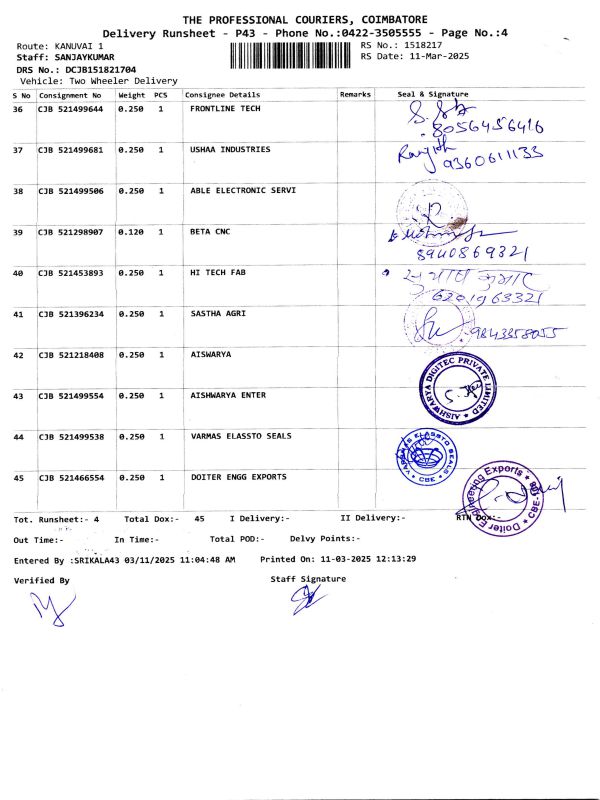 THE PROFESSIONAL COURIERS, COIMBATORE
Delivery Runsheet - P43 - Phone No.:0422-3505555 - Page No.:4
Route: KANUVAI 1
RS No.: 1518217
Staff: SANJAYKUMAR
RS Date: 11-Mar-2025
DRS No.: DCJB151821704
Vehicle: Two Wheeler Delivery
S No Consignment No Weight PCS Consignee Details Remarks Seal & Signature
36 CJB 521499644 0.250 1 FRONTLINE TECH
8056456416
37 CJB 521499681 0.250 1 USHAA INDUSTRIES
9360611133
38 CJB 521499506 0.250 1 ABLE ELECTRONIC SERVI
39 CJB 521298907 0.120 1 BETA CNC
8940869321
40 CJB 521453893 0.250 1 HI TECH FAB
कुमार
6201963321
41 CJB 521396234 0.250 1 SASTHA AGRI
9843358055
42 CJB 521218408 0.250 1 AISWARYA
AISHWARYA DIGITEC PRIVATE LIMITED
43 CJB 521499554 0.250 1 AISHWARYA ENTER
44 CJB 521499538 0.250 1 VARMAS ELASSTO SEALS
VARMAS ELASSTO SEALS CBE
45 CJB 521466554 0.250 1 DOITER ENGG EXPORTS
Doiter Engineering Exports CBE-108
Tot. Runsheet:- 4 Total Dox:- 45 I Delivery:- II Delivery:- RTN Dox:-
Out Time:- In Time:- Total POD:- Delvy Points:-
Entered By :SRIKALA43 03/11/2025 11:04:48 AM Printed On: 11-03-2025 12:13:29
Verified By Staff Signature